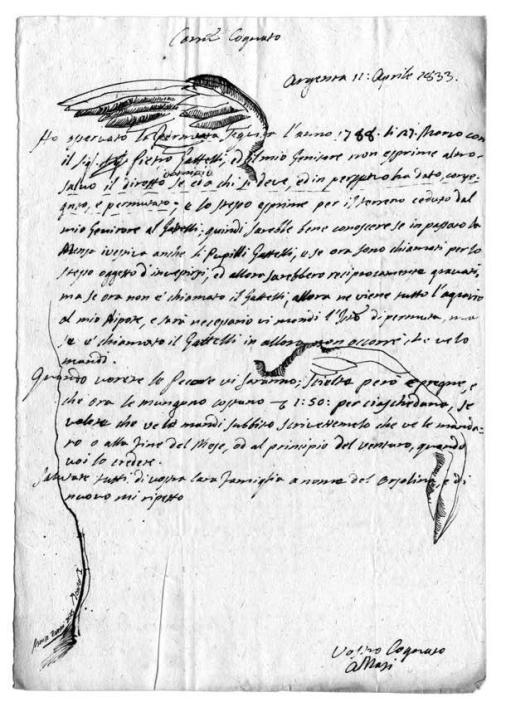 Cognato
Argenta 11: Aprile 1833.
Ho osservato la Permuta seguita l'anno 1788. li 27. Marzo con
il Sig. Pietro Gattelli, ed il mio Genitore non esprime altro
dominio
salvo il diretto se età chi si deve, ed in perpetuo ha dato, conse-
gnato, e permutato e lo stesso esprime per il terreno ceduto dal
mio Genitore al Gattelli; quindi sarebbe bene conoscere se in passato la
Mensa investiva anche li Pupilli Gattelli, o se ora sono chiamati per lo
stesso oggetto d'investirsi, ed allora sarebbero reciprocamente gravati,
ma se ora non è chiamato il Gattelli, allora ne viene tutto l'agravio
al mio Nipote, e sarà necessario vi mandi l' di permuta, ma
se è chiamato il Gattelli in allora non occorre che ve lo
mandi.
Quando vorete le Pecore vi saranno; però e pregne, e
che ora le mungano costano 1:50: per ciascheduna, se
volete che ve le mandi subbito scrivettemelo che ve le manda-
rò o alla fine del Mese, od al principio del venturo, quando
voi lo credete.
Salutate tutti di vostra cara Famiglia a nome del Orsolina, e di
nuovo mi ripetto
Vostro Cognato